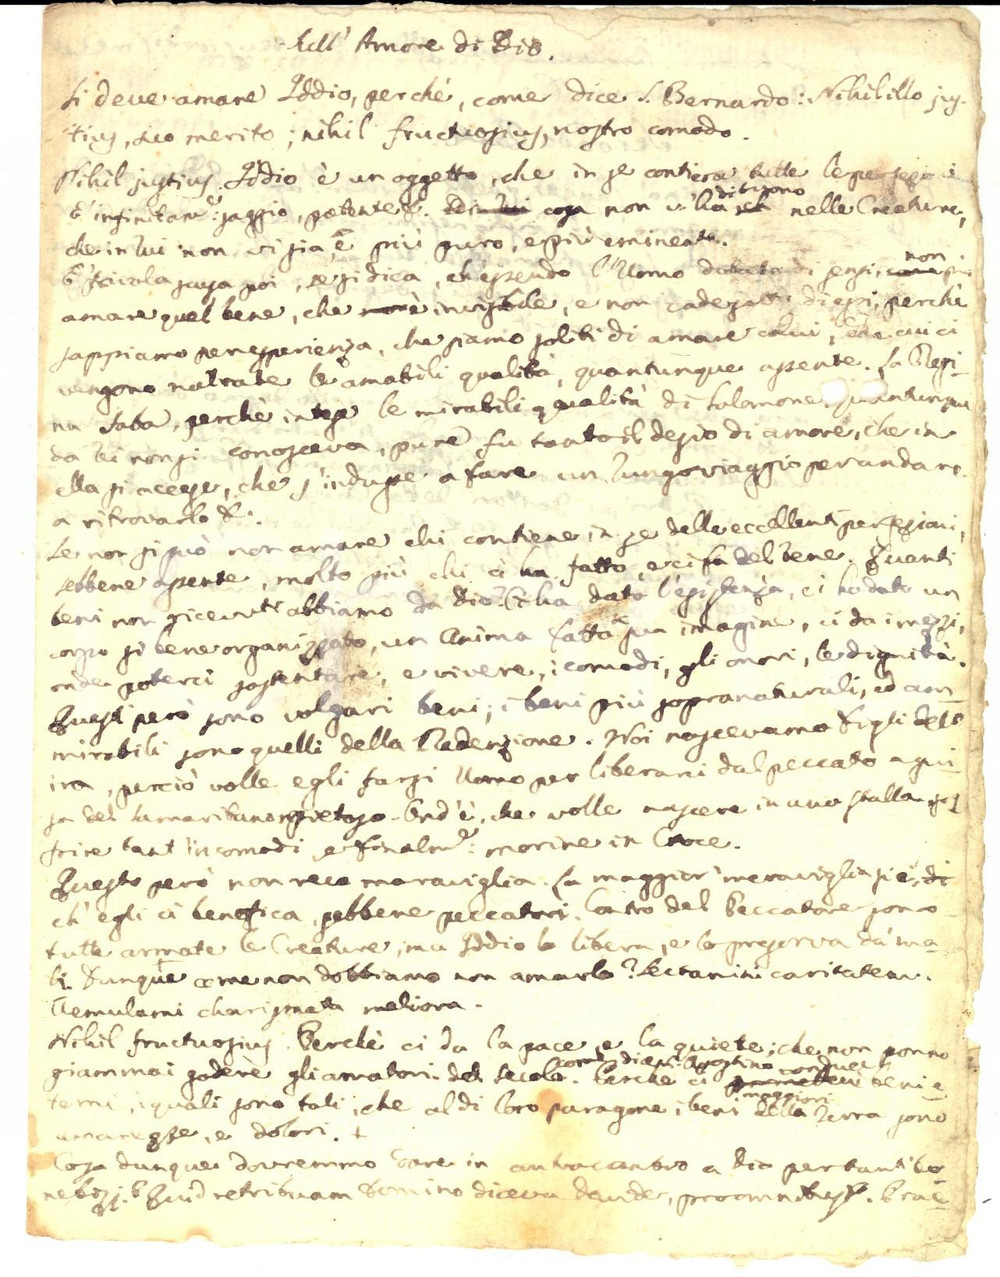 Dell' Amore di Dio.
Si deve amare Iddio, perchè, come dice S. Bernardo: Nihil illo jus-
tius, suo merito; nihil fructuosius, nostro comodo.
Nihil justius. Iddio è un oggetto, che in se contiene tutte le perfezioni
è infinitam.e saggio, potente &. cosa non vi ha di buono nelle Creature,
che in lui non vi sia, e più puro, e più eminente.
È frivola scusa poi, se si dica, ch'essendo l'Uomo dotato di sensi, non può
amare quel bene, che è invisibile, e non cade sotto di essi, perchè
sappiamo per esperienza, che siamo soliti di amare colui, di cui ci
vengono narrate le amabili qualità, quantunque assente. La Regi-
na Saba, perchè intese le mirabili qualità di Salomone, quantunque
da lei non si conosceva, pure fu tanto il desio di amore, che in
ella si accese, che s'indusse a fare un lungo viaggio per andare
a ritrovarlo &.
Se non si può non amare chi contiene in se delle eccellenti perfezioni,
sebbene assente, molto più chi ci ha fatto, e ci fa del bene. Quanti
beni non ricevuti abbiamo da Dio. Ci ha dato l'esistenza, ci ha dato un
corpo sì bene organizzato, un Anima fatta a sua imagine, ci da i mezzi,
onde poterci sostentare, e vivere, i comodi, gli onori, le dignità.
Questi però sono volgari beni; i beni più sopranaturali, ed am-
mirabili sono quelli della Redenzione. Noi nascevamo Figli dell'
ira, perciò volle egli farsi Uomo per liberarci dal peccato a gui-
sa del Samaritano pietoso. Ond'è, che volle nascere in una stalla, sof-
frire tant'incomodi, e finalm.e morire in Croce.
Questo però non reca maraviglia. La maggior meraviglia si è, di
ch'egli ci benefica, sebbene peccatori. Contro del Peccatore sono
tutte armate le Creature, ma Iddio lo libera, e lo preserva da' ma-
li. Dunque come non dobbiamo non amarlo? Sectamini caritatem.
Aemulami charismata meliora.
Nihil fructuosius. Perchè ci da la pace, e la quiete; che non ponno
giammai godere gli amatori del secolo, come dice S. Agostino. Perchè ci conduce a beni e-
terni, i quali sono tali, che al di loro paragone i beni maggiori della Terra sono
amarezze, e dolori. +
Cosa dunque dovremmo dare in contraccambio a Dio per tanti be-
nefizj. Quid retribuam Domino diceva Davide, pro omnibus &.